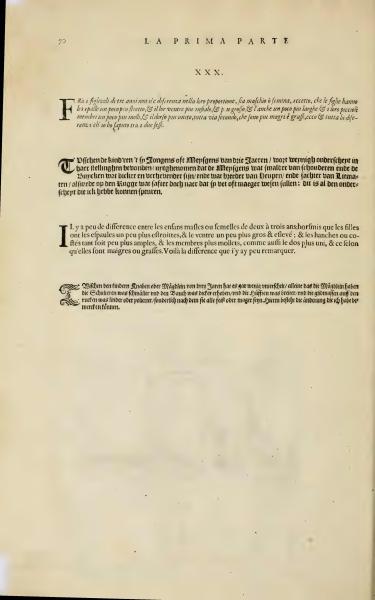 70 LA PRIMA PARTE
XXX.
FRa i figliuoli di tre anni non v'è differenza nella loro proportione, sia maschio ò femina, eccetto, che le figlie hanno
le spalle un poco piu strette, & il ventre piu grosso, & l'anche un poco piu larghe & i loro piccoli
membri un poco piu molli, & il dorso piu unito, tutta via secondo, che sono piu magri ò grassi, ecco la diffe-
renza ch'io ho saputo tra i due sessi.
TUsschen de kinderen 't sy Jongens oft Meyskens van drie Jaeren / wort weynigh onderscheyt in
haer stellinghen bevonden: uytghenomen dat de Meyskens wat smalder van schouderen ende de
Buycken wat dicker en verhevender sijn: ende wat breeder van Heupen: ende sachter van Litmae-
ten / alsoock op den Rugge wat safter doch naer dat sy vet oft maeger wesen sullen: dit is al den onder-
scheyt die ick hebbe konnen speuren.
IL y a peu de difference entre les enfants masles ou femelles de deux à trois ans horsmis que les filles
ont les espaules un peu plus estroittes, & le ventre un peu plus gros & eslevé; & les hanches ou co-
stés tant soit peu plus amples, & les membres plus mollets, comme aussi le dos plus uni, & ce selon
qu'elles sont maigres ou grasses. Voilà la difference que j'y ay peu remarquer.
ZWischen den kindern Knaben oder Mägdlein von drey Jaren hat es gar wenig unterscheit / alleine das die Mägdlein haben
die Schulteren was schmäler und den Bauch was dicker erhaben / und die Hüfften was breiter / und die gliedmassen auff den
rucken was linder oder polierter / sonderlich nach dem sie alle feist oder mager seyn. Hierin besteht die änderung die ich habe be-
mercken können.